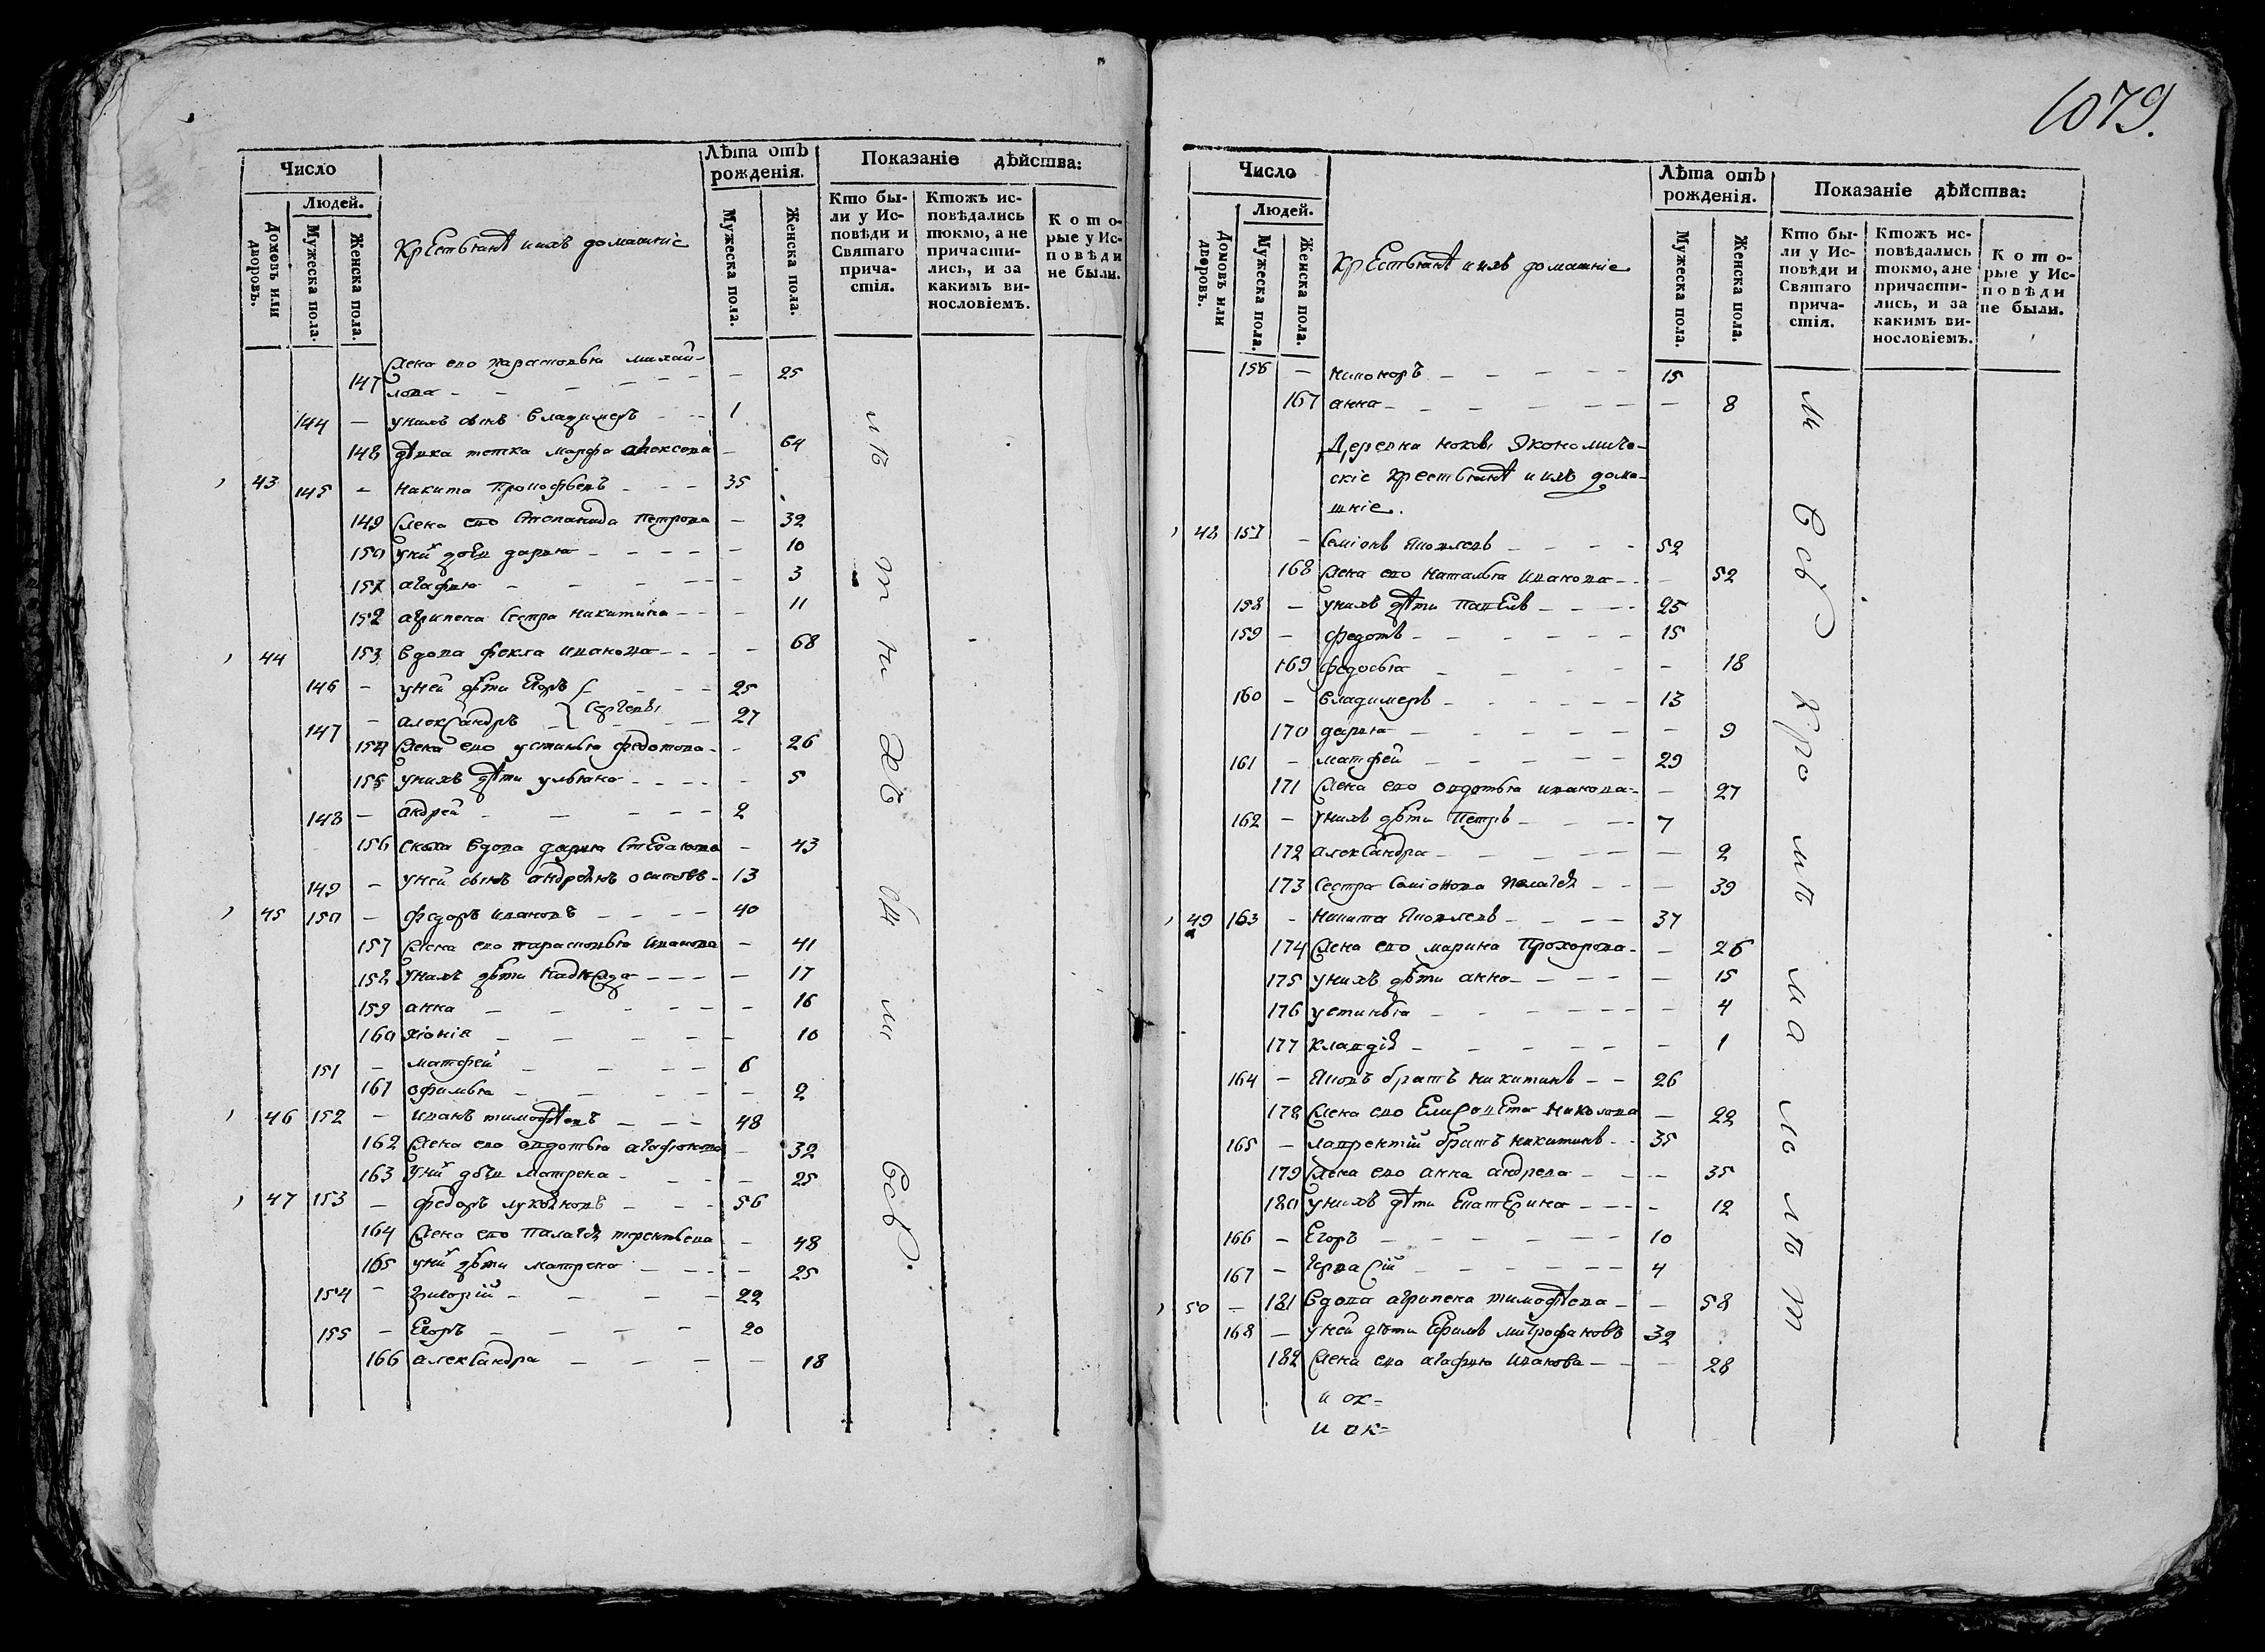 Число
Людей.
Домовъ или дворовъ.
Мужеска пола.
Женска пола.
Крестьянѣ и ихъ домашніе
Лѣта отъ рожденія.
Мужеска пола.
Женска пола.
Показаніе дѣйства:
Кто были у Исповѣди и Святаго причастія.
Ктожъ исповѣдались токмо, а не причастились, и за какимъ винословіемъ.
Которые у Исповѣди не были.
147 Жена ево парасковья михай-
лова - - - 25
144 - у нихъ сынъ владимеръ - - 1
148 дѣвка тетка марфа алексева - 64
43 145 - никита прокофьевъ - - - 35
149 Жена ево степанида петрова - 32
150 у них дочь дарья - - - - 10
151 агафья - - - - 3
152 агрипена сестра никитина - - - 11
44 153 вдова фекла иванова - - - 68
146 - у ней дѣти Егоръ - - - 25
Сергеевы
147 - александръ - - - 27
154 Жена ево устинья федотова - - 26
155 у нихъ дѣти ульяна - - - - 5
148 - андрей - - - - 2
156 вдова дарья - 43
149 - у ней сынъ осиповъ - 13
45 150 - федоръ ивановъ - - - - 40
157 Жена ево парасковья иванова - 41
158 у нихъ дѣти надежда - - - - 17
159 анна - - - - 16
160 хіонія - - - - 10
151 - матфей - - - - 6
161 офимья - - - - 2
46 152 - иванъ тимофѣевъ - - - 48
162 Жена ево овдотья агафонова - 32
163 у них дочь матрена - - - - 25
47 153 - федоръ лукьяновъ - - - 56
164 Жена ево палагея терентьева - 48
165 у них дѣти матрена - - - - 25
154 - григорій - - - - 22
155 - Егоръ - - - - 20
166 александра - - - - 18
1079.
Число
Людей.
Домовъ или дворовъ.
Мужеска пола.
Женска пола.
Крестьянѣ и ихъ домашніе
Лѣта отъ рожденія.
Мужеска пола.
Женска пола.
Показаніе дѣйства:
Кто были у Исповѣди и Святаго причастія.
Ктожъ исповѣдались токмо, а не причастились, и за какимъ винословіемъ.
Которые у Исповѣди не были.
156 - никоноръ - - - - 15
167 анна - - - - - 8
Деревни Экономиче-
скіе крестьянѣ и ихъ дома-
шніе.
48 157 - Семіонъ яковлевъ - - - - 52
168 Жена ево наталья иванова - - - 52
158 - у нихъ дѣти павелъ - - - - 25
159 - федотъ - - - - 15
169 федосья - - - - 18
160 - владимеръ - - - - 13
170 дарья - - - - 9
161 - матфей - - - - 29
171 Жена ево овдотья иванова - - 27
162 - у нихъ дѣти петръ - - - - 7
172 александра - - - - 2
173 сестра семіонова - - - 39
49 163 - никита яковлевъ - - - - 37
174 Жена ево марина прохорова - - 26
175 у нихъ дѣти анна - - - - 15
176 устинья - - - - 4
177 клавдія - - - - 1
164 - яковъ братъ никитинъ - - 26
178 Жена ево Елисовета - 22
165 - лаврентій братъ никитинъ - - 35
179 Жена ево анна андрева - - - 35
180 у нихъ дѣти Екатерина - - - - 12
166 - Егоръ - - - - 10
167 - - - - - 4
50 - 181 вдова агрипена тимофѣева - - 58
168 - у ней дѣти Ефимъ митрофановъ 32
182 Жена ево агафья иванова - - - 28